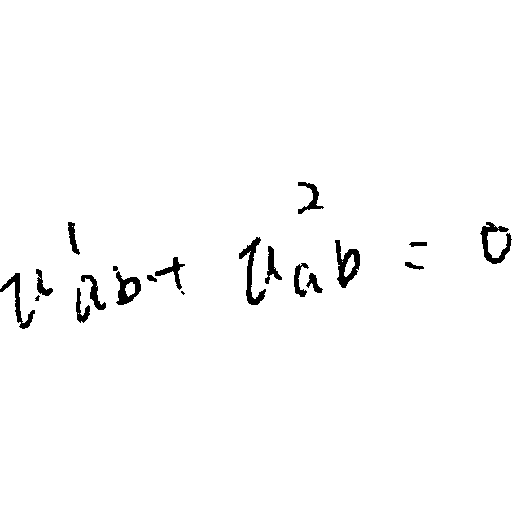 u^1_{ab} + u^2_{ab} = 0